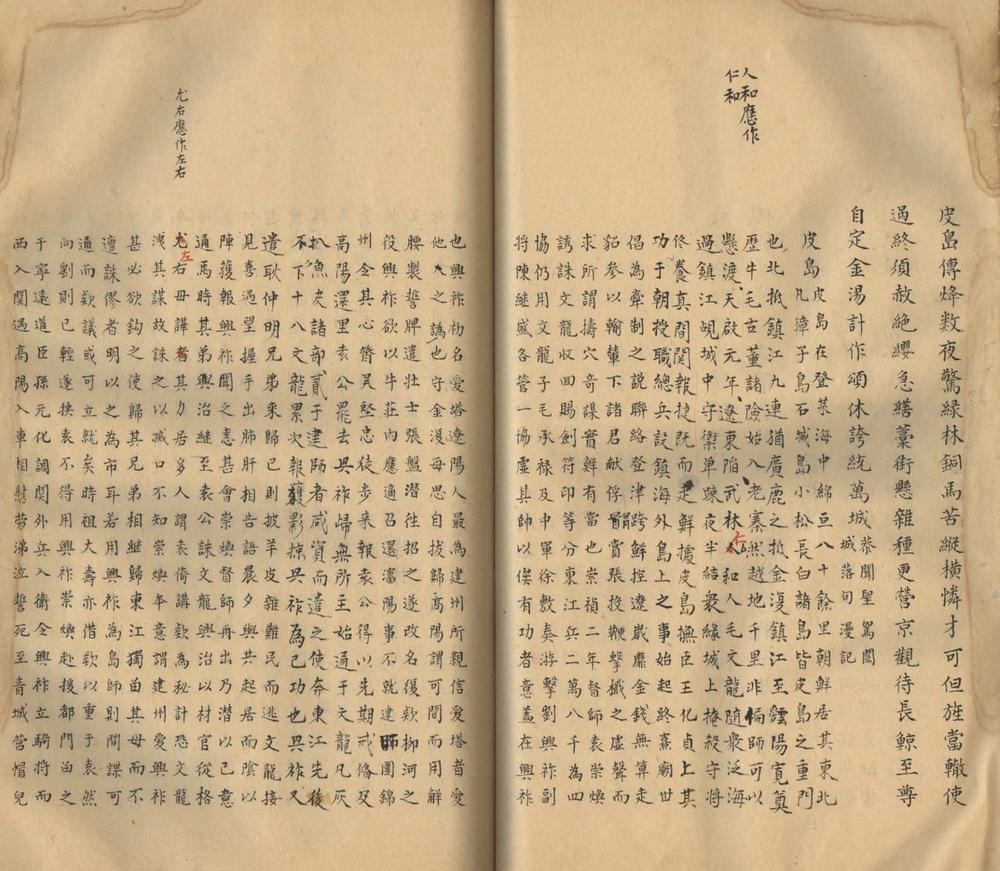 人和應作
仁和
皮島傳烽数夜驚緑林銅馬苦縱横憐才可但旌當轍使
過終須赦絶纓急繕藁街懸雜種更營京觀待長鯨至尊
自定金湯計作頌休誇統萬城恭聞聖駕閱城落句漫記
皮島皮島在登萊海中綿亘八十餘里朝鮮居其東北
島凡獐子島石城島小松長白諸島皆皮島之重門
也北抵鎮江九連猶廣鹿之抵金復鎮江至寬奠
歷牛毛古董諸險始入老寨然越地千里非偏師可以
懸渡天啟元年遼東陷武林人仁和人毛文龍随衆泛海
過鎮江覘城中守禦單竦夜半結衆緣城上掩殺守將
佟養真間關報捷既而走鮮攄皮島撫臣王化貞上其
功于朝授職總兵設鎮海外島上之事始起終熹廟世
倡為牽制之說聯絡登津跨鮮控遼歲縻金錢無算走
貂参以輸輦下諸君献俘冐賞張投鞭擊檝之虚聲而
求所謂擣穴奇謀實鮮有當也崇禎二年督師袁崇煥
誘誅文龍收囬賜劍符印等分東江兵二萬八千為四
協仍用文龍子毛承禄及中軍徐敷奏游擊劉興祚副
將陳继盛各管一協虚其師以俟有功者意蓋在興祚
尤右應作左右
也興祚初名愛塔遼陽人最為建州所親信愛塔者愛
他人之譌也守金漫毋思自拔歸高陽謂可間而用觧
腰製誓牌遣壯士張盤潜往招之遂改名復欵柳河之
役興祚欲以牛莊内應適召還瀋師圍錦
州全其心膂吴堅忠徒步来報袁公得以先期戒俻及
高陽還里袁公罷去興祚歸無所主始通于文龍凡灰
扒魚皮諸部貳于建師者咸資而遣之使奔東江先後
不下十八文龍累次報獲影掠興祚為己功也興祚又
遣耿仲明兄弟來歸已則披羊皮雜難民而逃文龍接
見喜過望握手出肺肝相告語晨夕共起居而陰以
陣獲報興祚聞之恚甚會崇煥督師再出乃潜以己意
通焉時其弟興治継至袁公誅文龍興治以材官從格
尤左右毋譁者其力居多人謂袁倚講欵為秘計恐文龍
洩其謀故誅之以滅口不知崇煥夲意謂建州愛興祚
甚必欲鈎之使歸其兄弟相継歸東江獨畄其母而不
遣誅僇者明以之為市耳若用興祚為島師則間諜可
通而欵議或可立就矣時祖大壽亦借欵以重于袁然
向劉則已輕遂挟袁不得用興祚崇煥赴援都門畄之
于寧遠道臣孫元化調関外兵入衞全興祚立騎將而
西入関過高陽入車相慰劳涕泣誓死至青城營帽兒